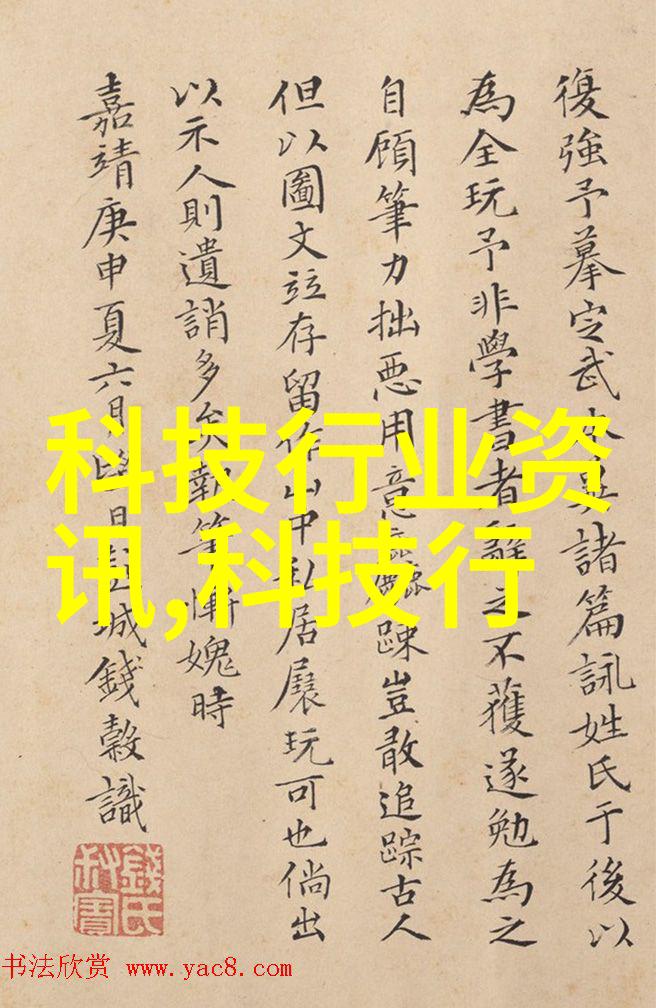 復強予摹定武本并諸篇詠姓氏于後以
為全玩予非學書者辭之不獲遂勉為之
自顧筆力拙惡用意麤踈豈敢追踪古人
但以圖文竝存留作山中私居展玩可也倘出
以示人則遺誚多矣執筆慚媿時
嘉靖庚申夏六月 日彭城錢穀識
科技行业资
讯,科技行
书法欣赏 www.yac8.com